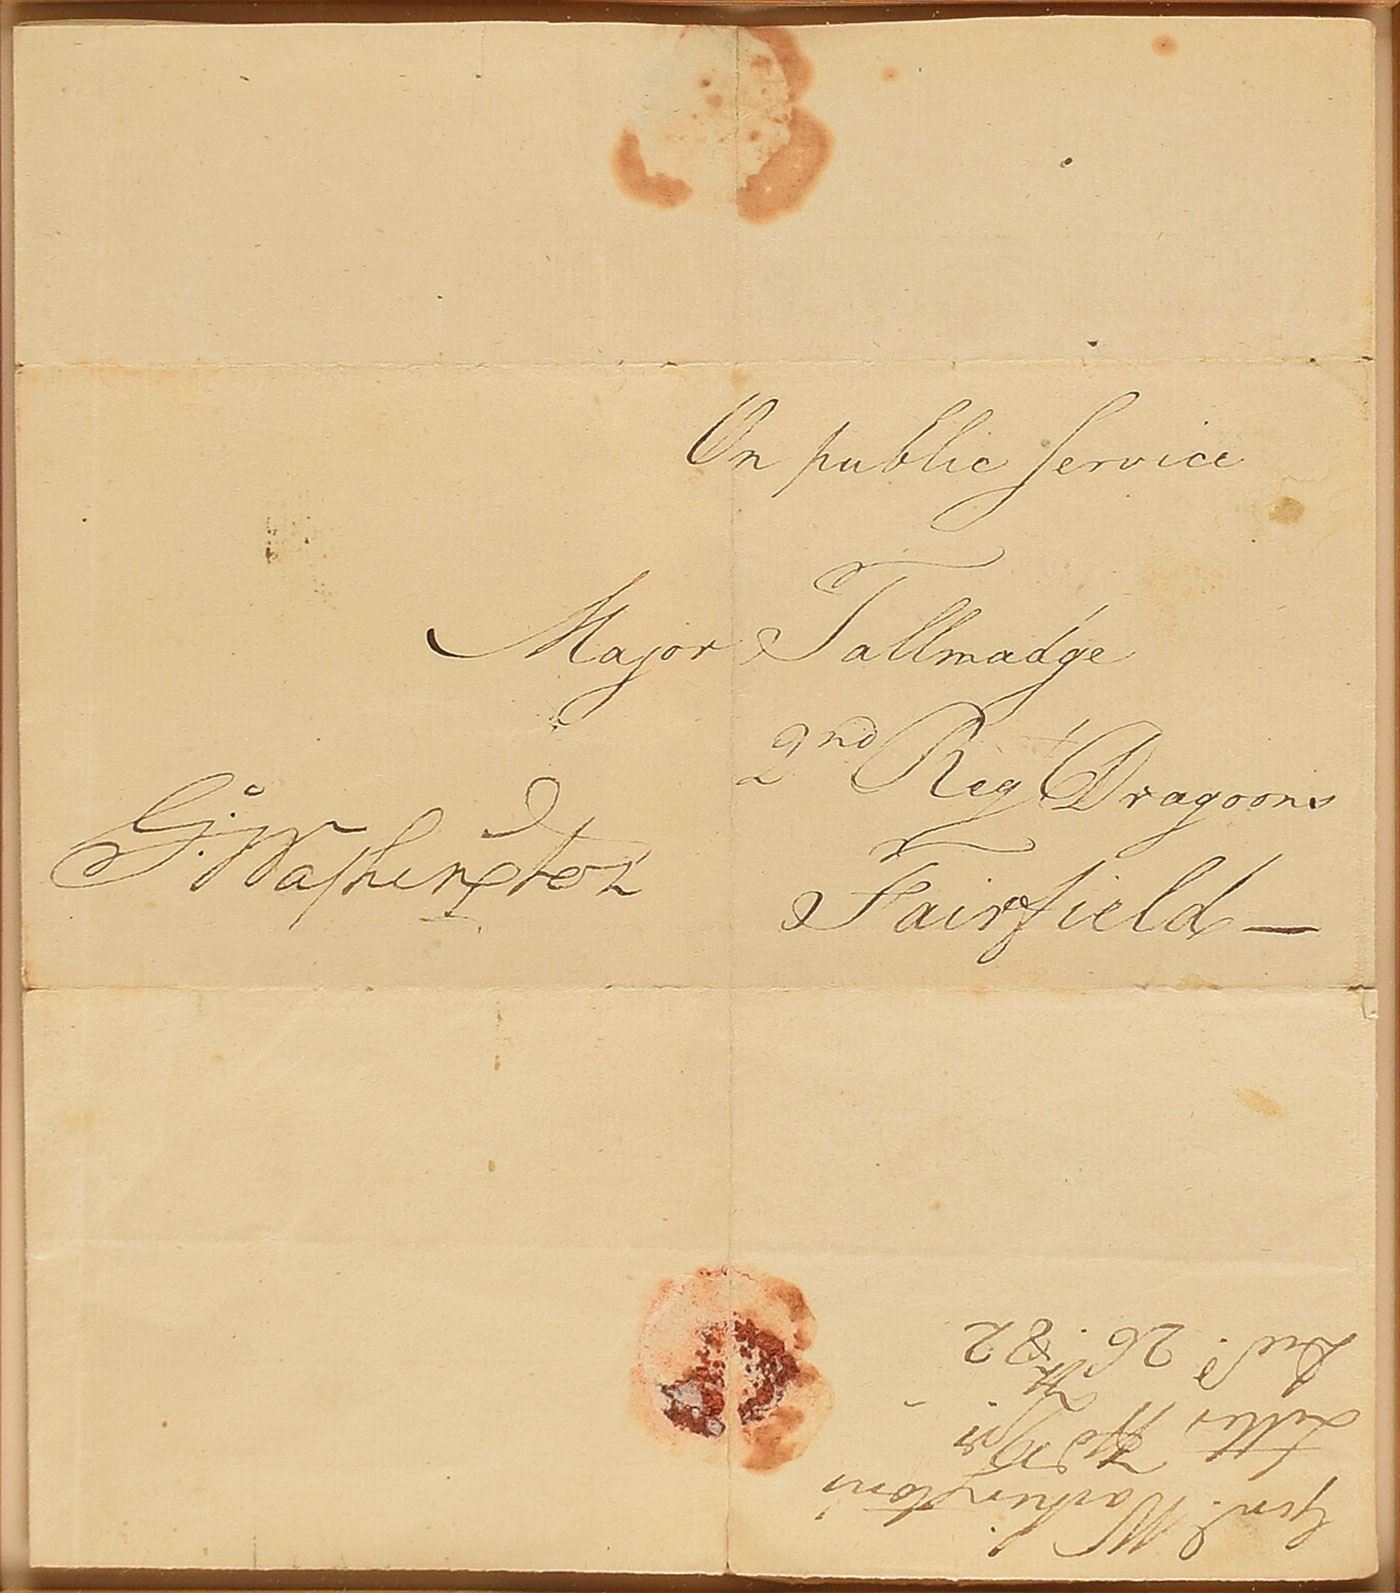 On public Service
Major Tallmadge
2nd Regt Dragoons
Fairfield —
Go: Washington
Genl. Washington's
Letter
Decr. 26th. 82